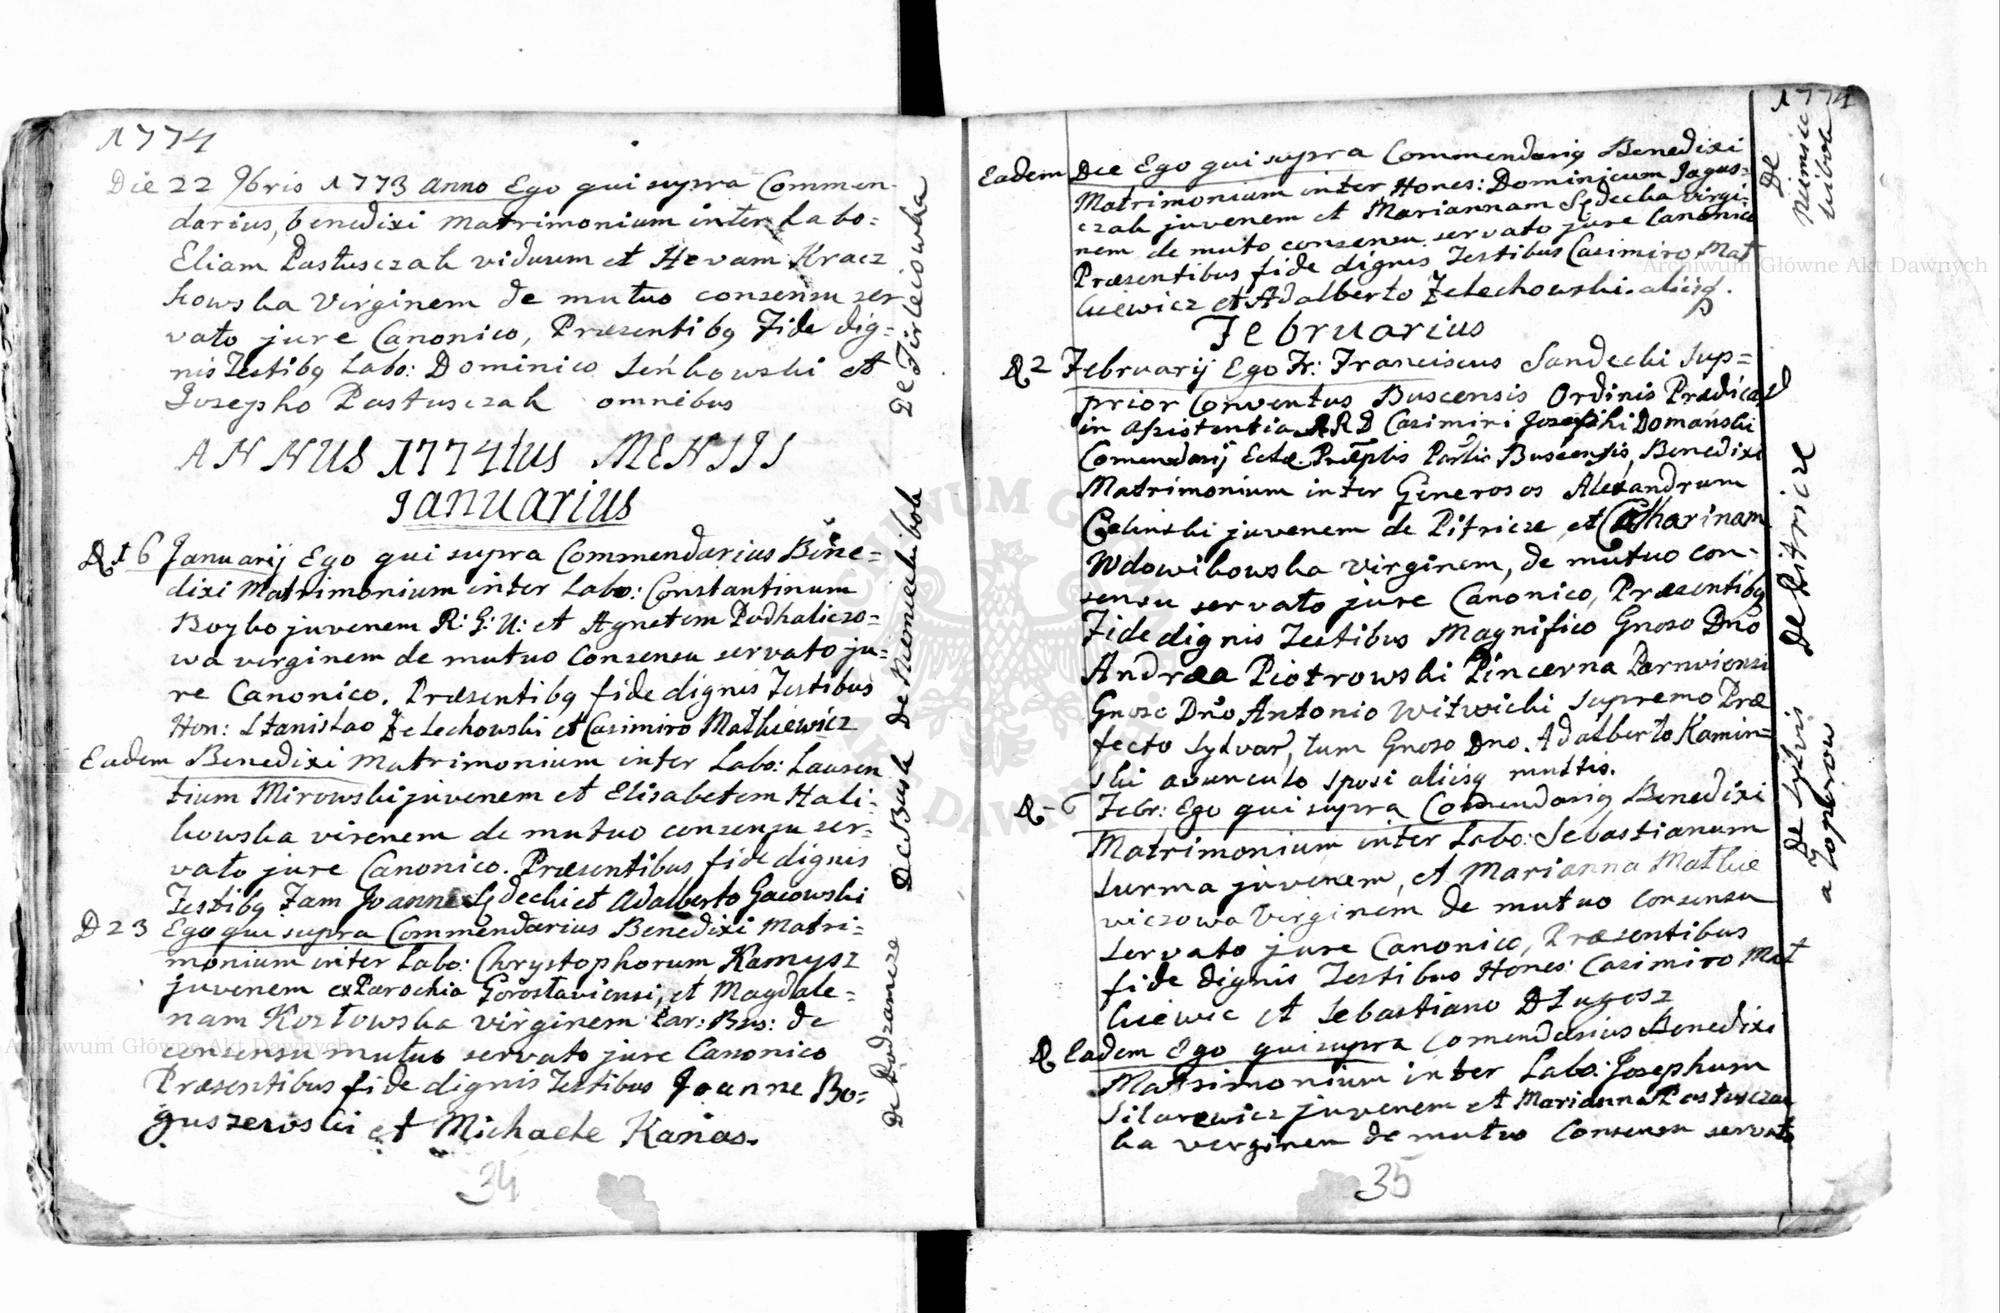 1774
Die 22 9bris 1773 anno Ego qui supra Commen-
darius, benedixi Matrimonium inter Labo=
Eliam Pastusczak viduum et Hevam Kracz
kowska Virginem de mutuo consensu ser
vato jure Canonico, Præsentibq Fide dig-
nis Testibq Labo: Dominico Seńkowski et
Josepho Pastusczak omnibus
De Firleiowka
ANNUS 1774tus MENSIS
Januarius
D. 16 Januarij Ego qui supra Commendarius Bene=
dixi Matrimonium inter Labo: Constantinum
Boyko juvenem R: G: U: et Agnetem Podhaliczo=
wa virginem de mutuo Consensu servato ju=
re Canonico. Præsentibq fide dignis Testibus
Hon: Stanislao Zelechowski et Casimiro Matkiewicz
De Niemielibok
Eadem Benedixi Matrimonium inter Labo: Lauren
tium Mirowski juvenem et Elisabetem Hali-
kowska virenem de mutuo consensu ser-
vato jure Canonico. Præsentibus fide dignis
Testibq Fam Joanne Sędecki et Adalberto Gacowski
De Busk
D 23 Ego qui supra Commendarius Benedixi Matri=
monium inter Labo: Chrystophorum Kamysz
juvenem ex Parochia Gorostaviensi, et Magdale=
nam Kozłowska virginem Par: Bus: de
consensu mutuo servato jure Canonico
Præsentibus fide dignis Testibus Joanne Bo=
guszewski et Michaele Kanas.
34
1774
Eadem Die Ego qui supra Commendariq Benedixi
Matrimonium inter Hones: Dominicum Jagus=
czak juvenem et Mariannam Sędecka Virgi-
nem de muto consensu servato jure Canonico
Præsentibus fide dignis Testibus Casimiro Mat
kiewicz et Adalberto Zelechowski. aliisq.
De
Februarius
D. 2 Februarij Ego Fr: Franciscus Sandecki Sup=
prior Conventus Buscensis Ordinis Prædicat
in assistentia A R D Casimiri Josephi Domański
Comendarij Benedixi
Matrimonium inter Generosos Alexandrum
Celinski juvenem de Pitricze, et Catharinam
Wdowikowska virginem, de mutuo con-
sensu servato jure Canonico, Præsentibq
Fide dignis Testibus Magnifico Gnoso Dno
Andræa Piotrowski Pincerna
Gnoso Dno Antonio Witwicki Supremo Præ
fecto Sylvar, tum Gnoso Dno. Adalberto Kamin=
ski avunculo sposi aliisq multis.
De Pitricze
D - 6 Febr: Ego qui supra Comendariq Benedixi
Matrimonium inter Labo: Sebastianum
Surma juvenem, et Marianna Matkie
viczowa Virginem de mutuo Consensu
servato jure Canonico, Præsentibus
fide dignis Testibus Hones: Casimiro Mat
kiewic et Sebastiano Długosz
De Sylvis
a Toporow
D. Eadem Ego qui supra Comendarius Benedixi
Matrimonium inter Labo: Josephum
juvenem et Marianna Pastusczac
ka virginem de mutuo Consensu servato
35
Archiwum Główne Akt Dawnych
Archiwum Główne Akt Dawnych
ARCHIWUM GŁÓWNE AKT DAWNYCH